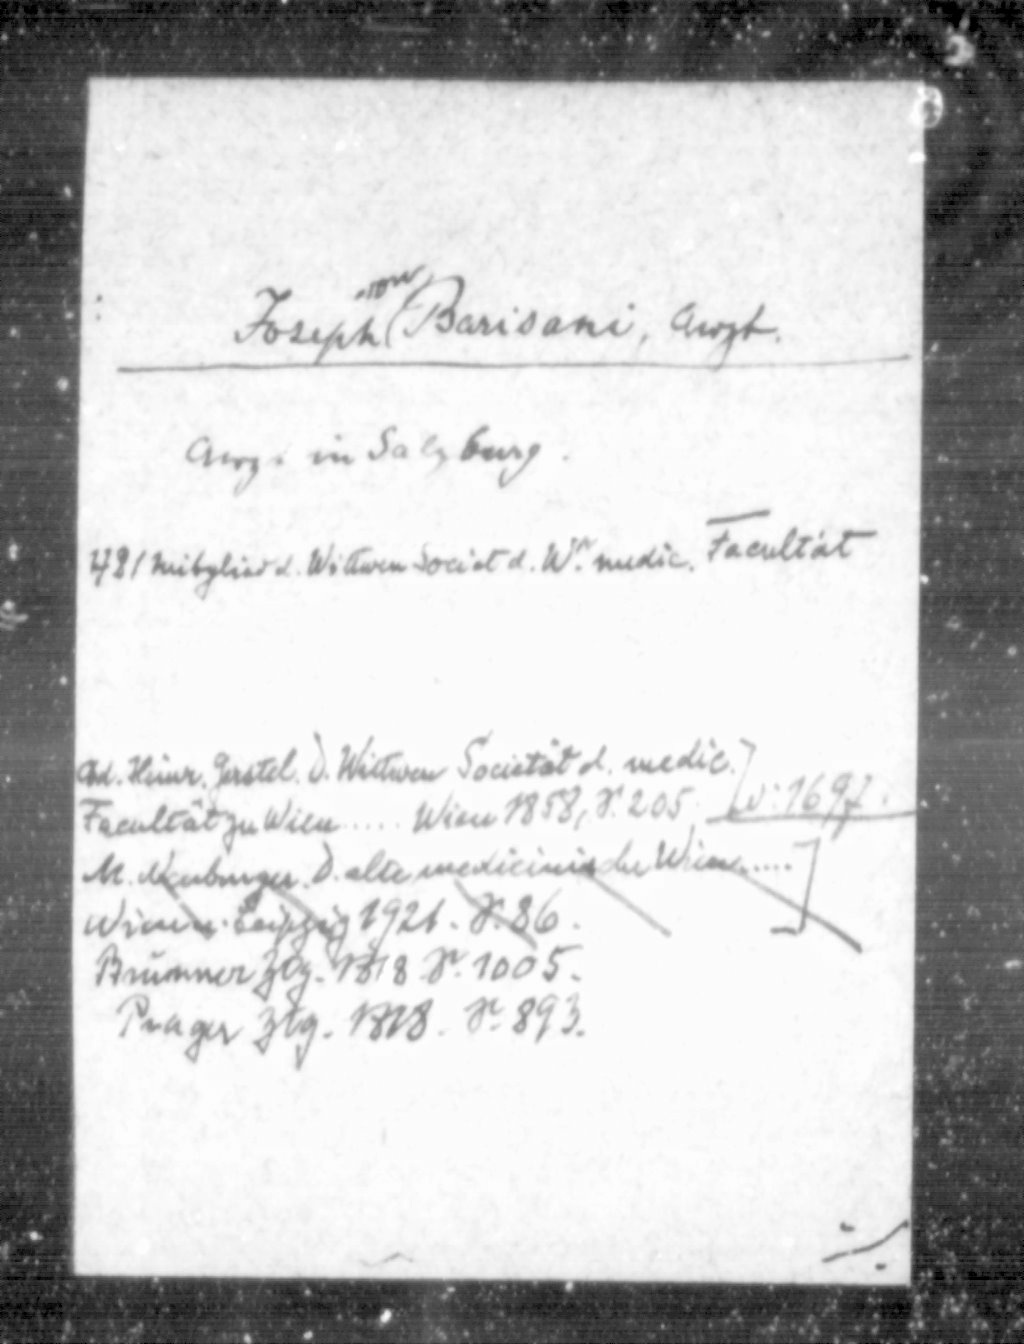 Joseph von Barisani, Arzt.
Arzt in Salzburg.
421 Mitglied d. Wittwen Societ d. Wr. medic. Facultät
Ad. Heinr. Gerstel. D. Wittwen Societät d. medic.
Facultät zu Wien ..... Wien 1858, S. 205 v: 1697.
M. Neuburger. D. alte medicinische Wien .....
Wien u. Leipzig 1921. S. 86.
Brünner Ztg. 1818 S. 1005.
Prager Ztg. 1818. S. 893.